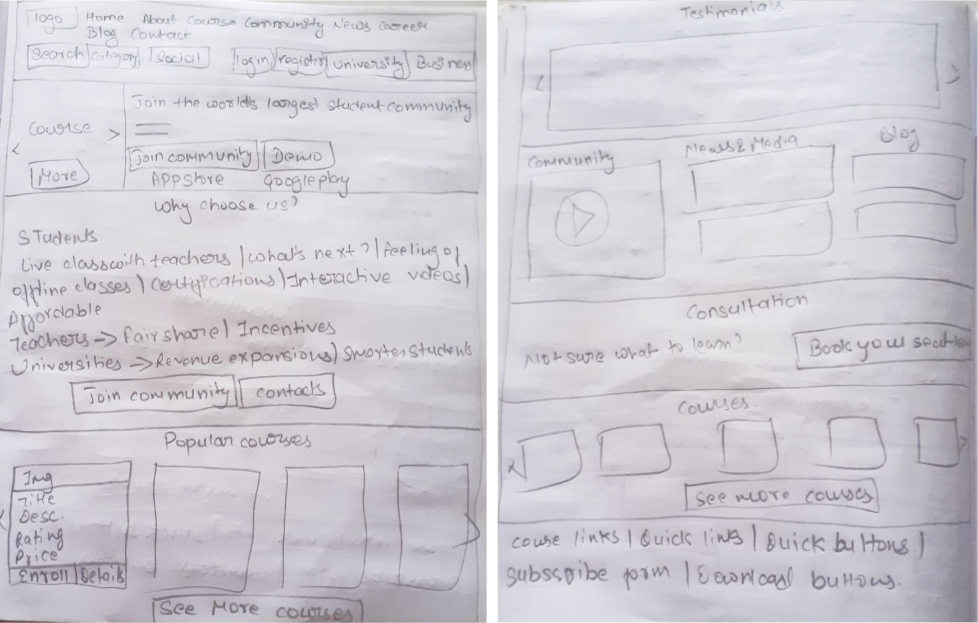 logo Home About Course Community News Career
Blog Contact
Search category Social login register University Business
Join the world's largest student community
Course >
<
Join community Demo
More
APPStore Google play
Why choose us?
STudents
Live class with teachers | what's next? | feeling of
offline classes | Certifications | Interactive videos |
Affordable
Teachers -> Fair share | Incentives
Universities -> Revenue expansions | Smarter students
Join community contacts
Popular courses
Img
Title
Desc.
Rating
Price
Enroll Details
See More courses
Testimonials
Community News & Media Blog
Consultation
Not sure what to learn? Book your
Courses.
See more courses
course links | Quick links | Quick buttons |
Subscribe form | Download buttons.